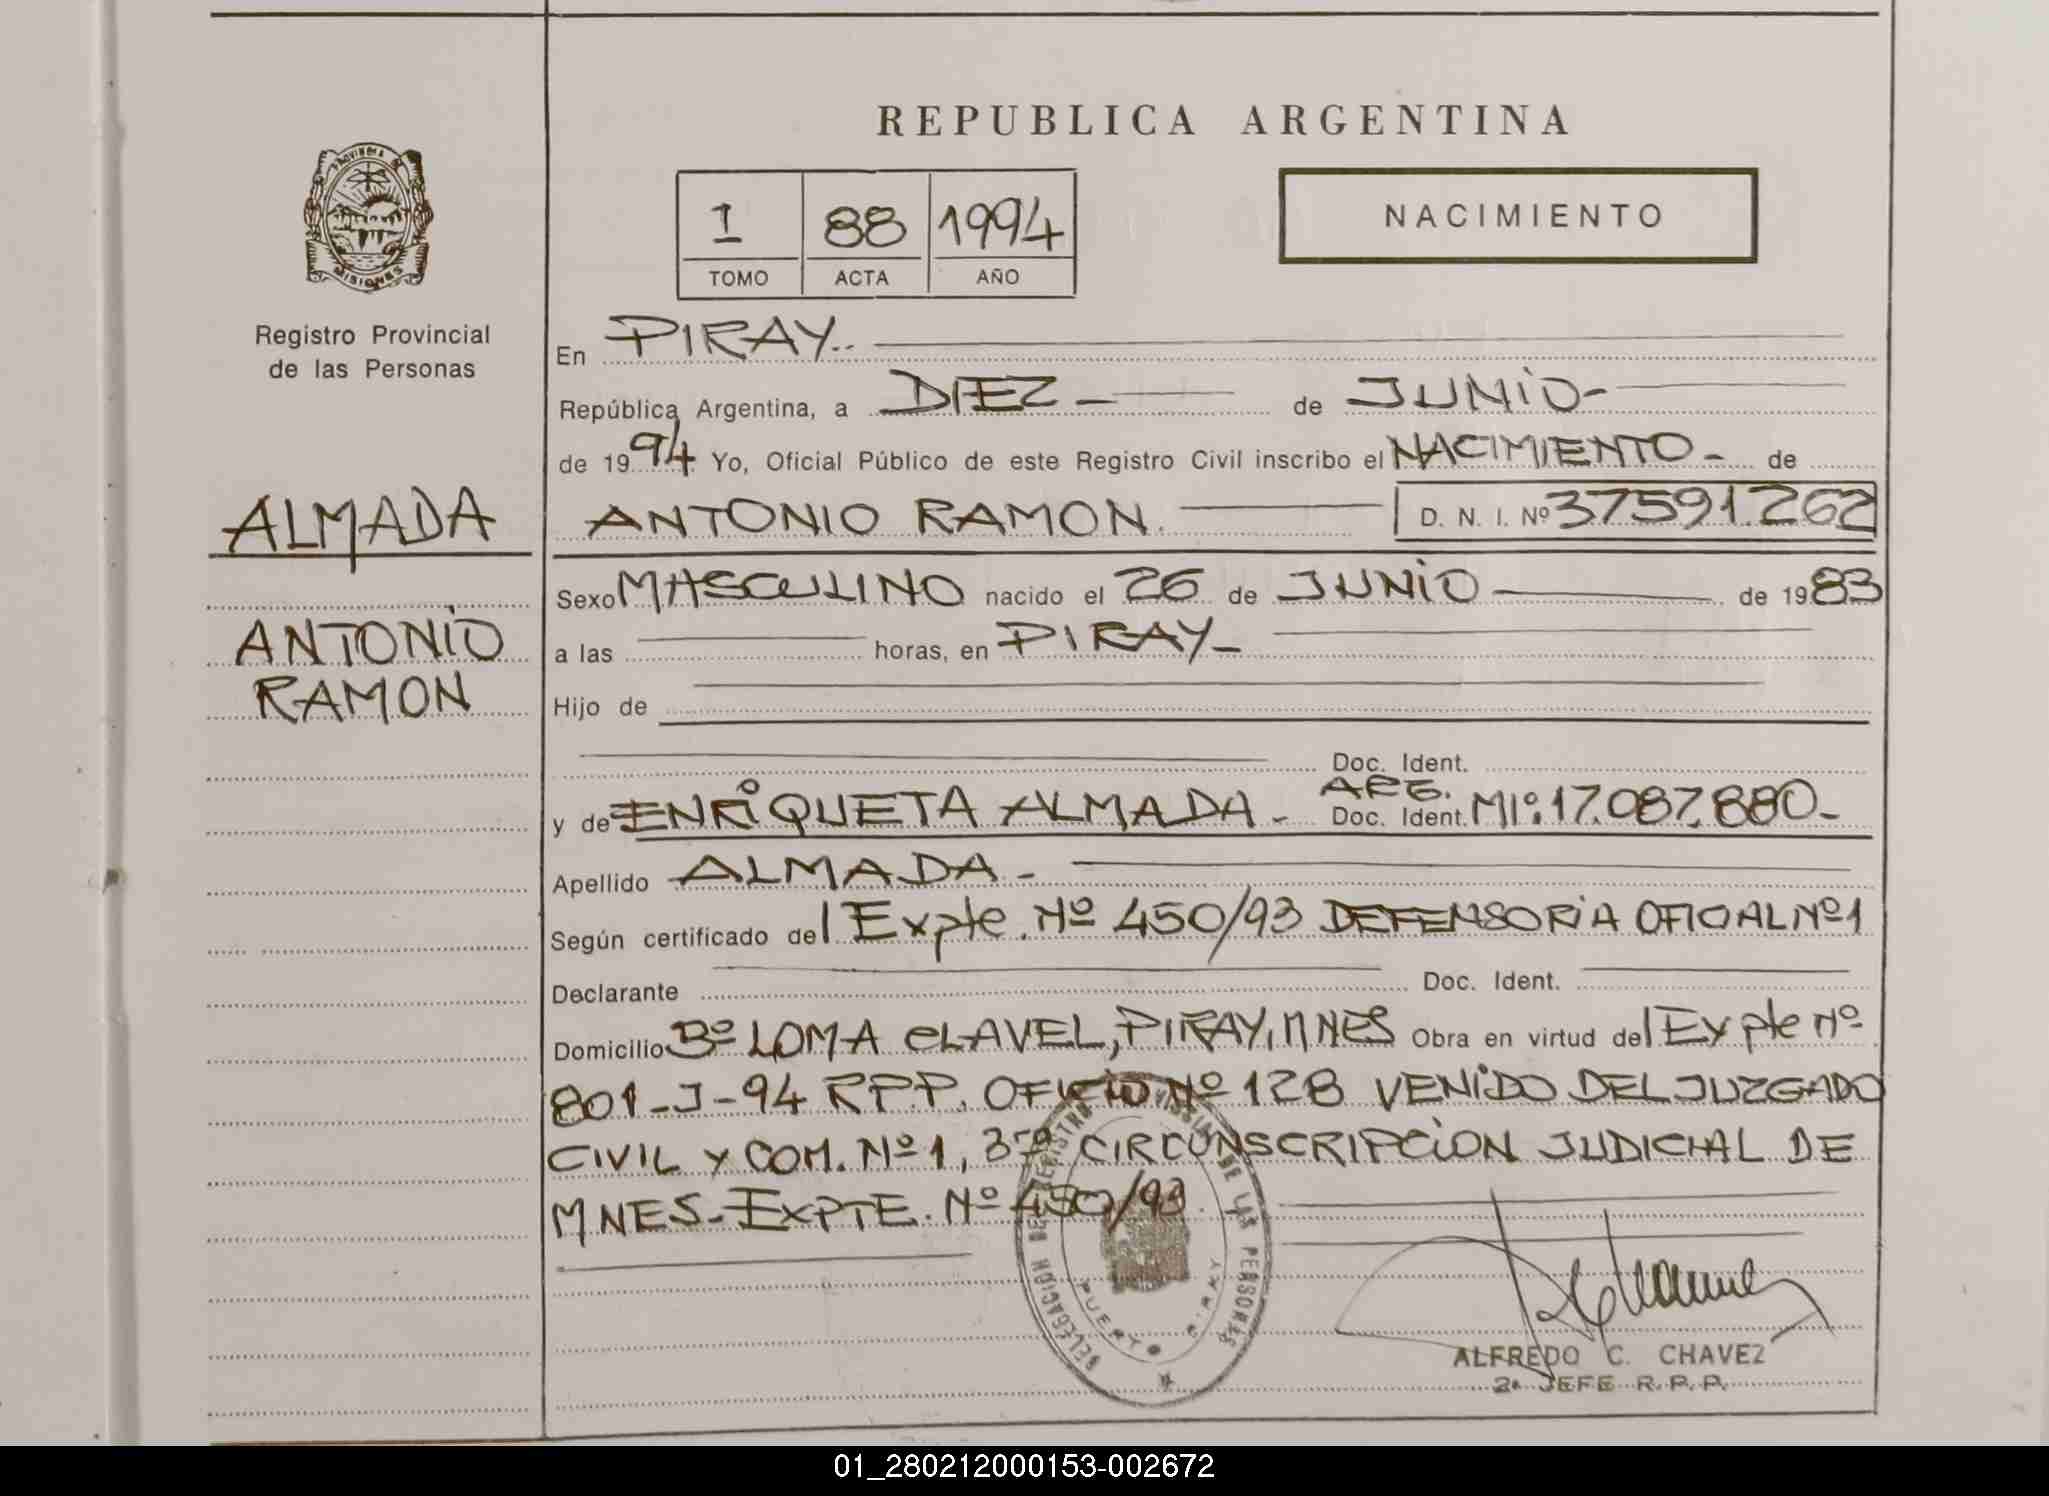 REPUBLICA ARGENTINA
PROVINCIA DE
MISIONES
Registro Provincial
de las Personas
1 88 1994
TOMO ACTA AÑO
NACIMIENTO
En PIRAY..
República Argentina, a DIEZ - de JUNIO-
de 1994 Yo, Oficial Público de este Registro Civil inscribo el NACIMIENTO - de
ALMADA
ANTONIO RAMON. D. N. I. Nº 37591.262
Sexo MASCULINO nacido el 26 de JUNIO de 1983
ANTONIO
a las horas, en PIRAY-
RAMON
Hijo de
Doc. Ident.
ARG.
y de ENRIQUETA ALMADA - Doc. Ident. MIº: 17.087.880-
Apellido ALMADA -
Según certificado del Expte. Nº 450/93 DEFENSORIA OFICIAL Nº1
Declarante Doc. Ident.
Domicilio Bº LOMA CLAVEL, PIRAY, MNES Obra en virtud del Expte Nº
801-J-94 R.P.P. OFICIO Nº 128 VENIDO DEL JUZGADO
CIVIL Y COM. Nº 1, 3ra CIRCUNSCRIPCION JUDICIAL DE
MNES.-EXPTE. Nº 450/93.
DELEGACION DEL REGISTRO PROVINCIAL DE LAS PERSONAS
PUERTO PIRAY
ALFREDO C. CHAVEZ
2º JEFE R.P.P.
01_280212000153-002672